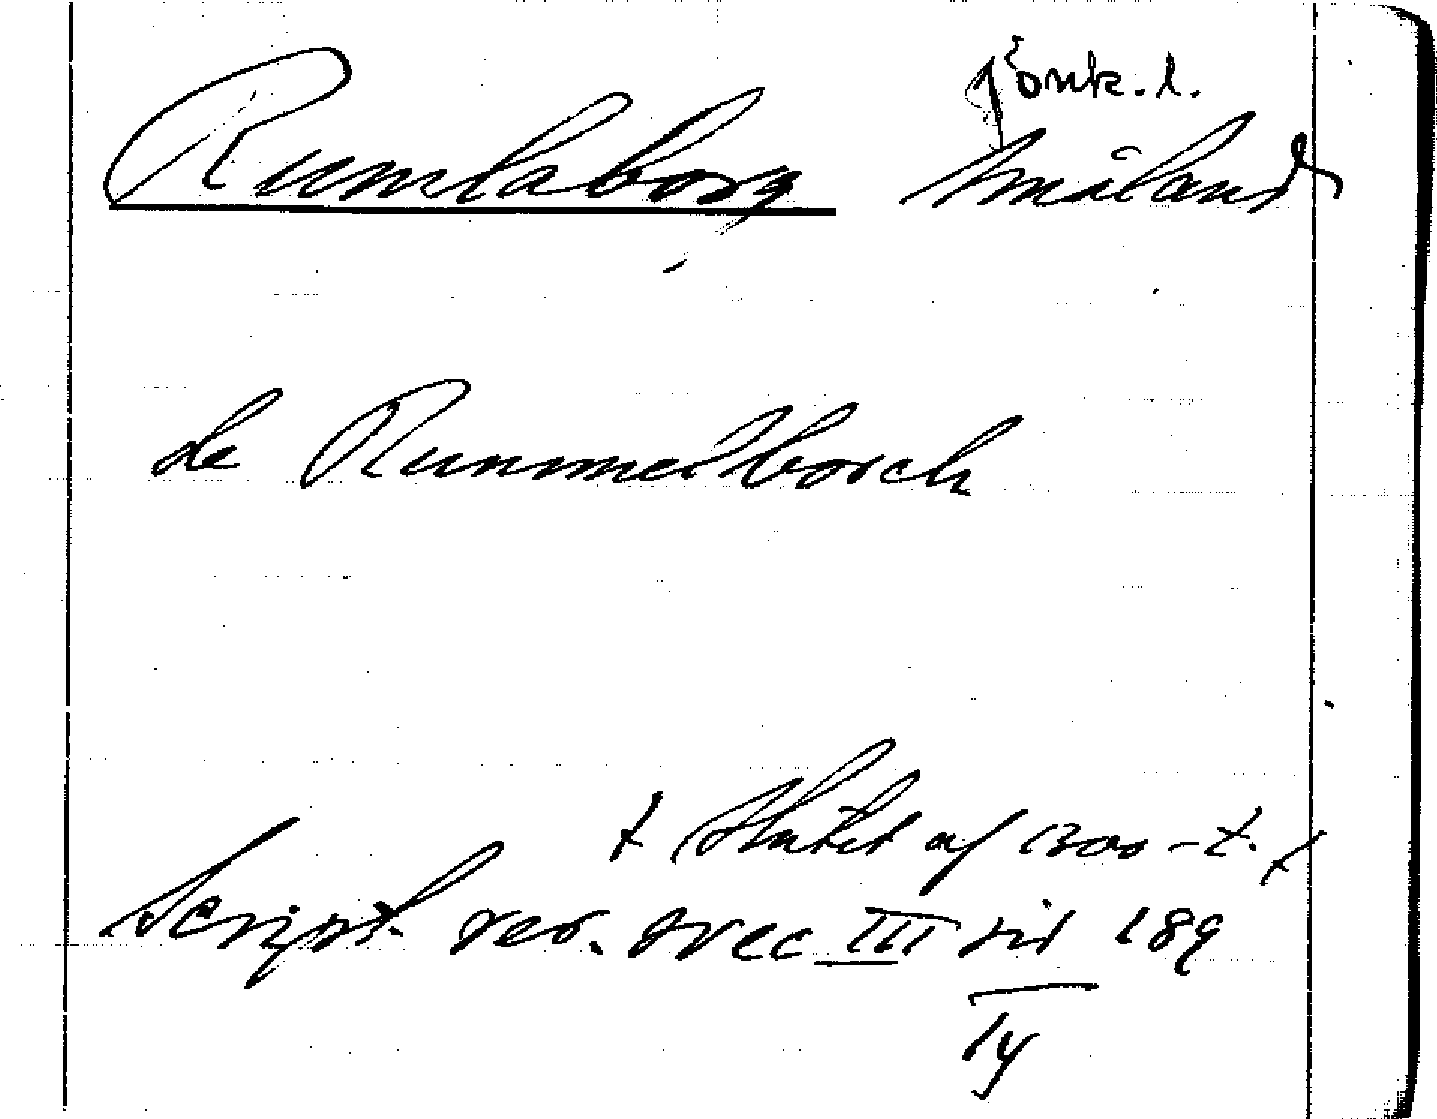 Jönk. l.
Rumlaborg Småland
de Rummelborch
Slutet af 1300-t.
Script. rer. svec III sid 189